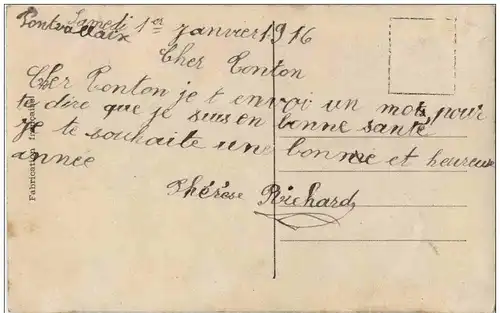 Pontvallain Samedi 1er Janvier 1916
Cher Tonton
Cher Tonton je t envoi un mots pour
te dire que je suis en bonne santé
Je te souhaite une bonne et heureuse
année
Thérèse Richard
Fabrication française